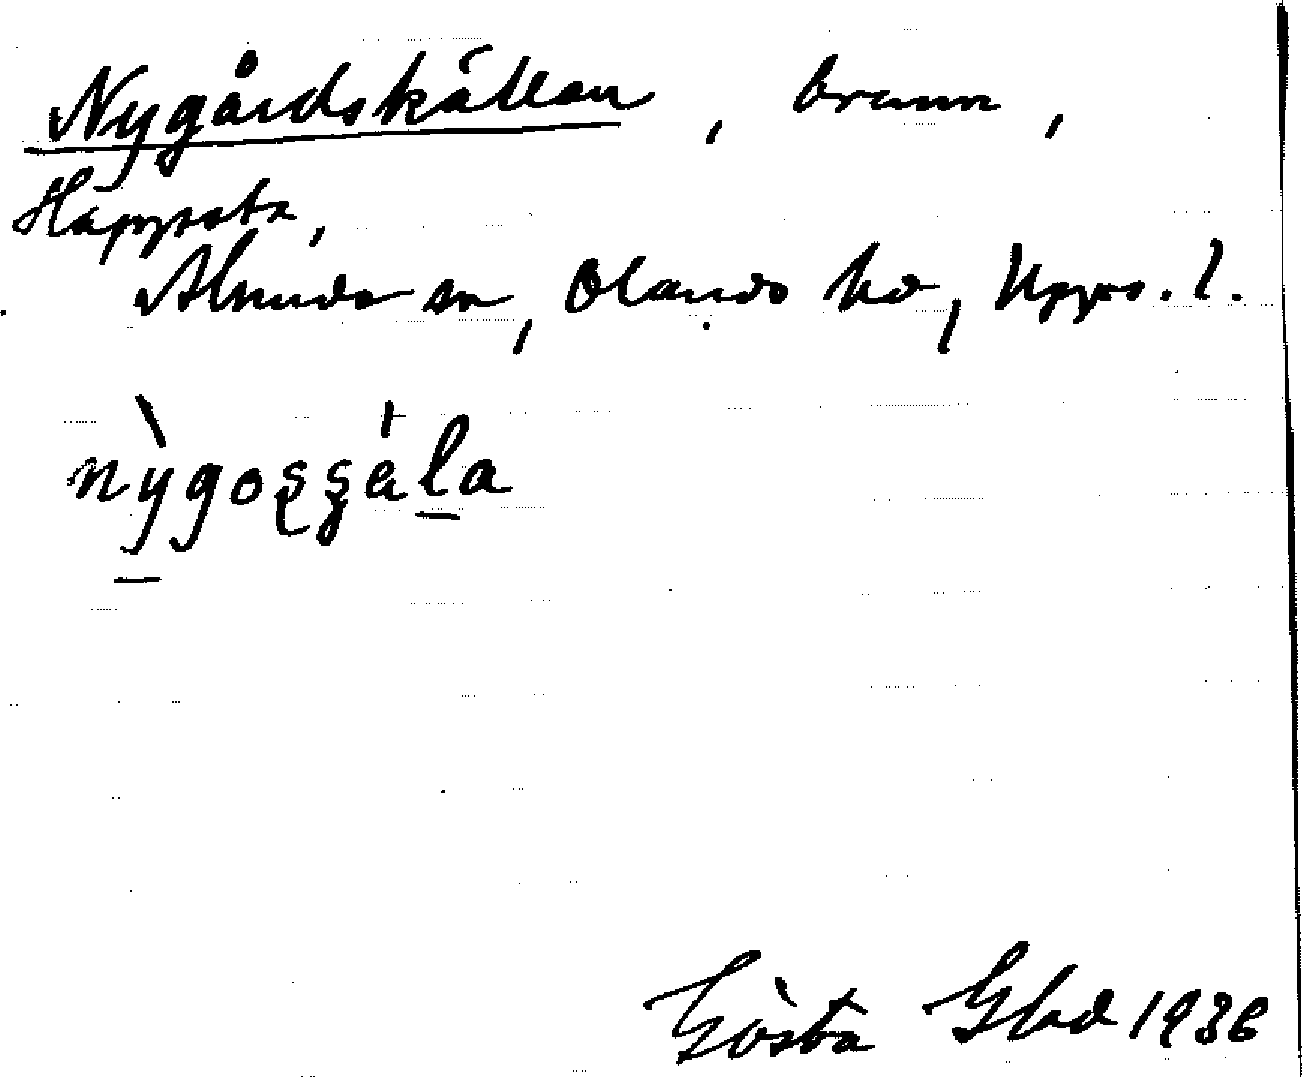 Nygårdskällan, brunn,
Häppsta,
Alunda sn, Olands hd, Upps. l.
nygosşäla
Gösta Glad 1936